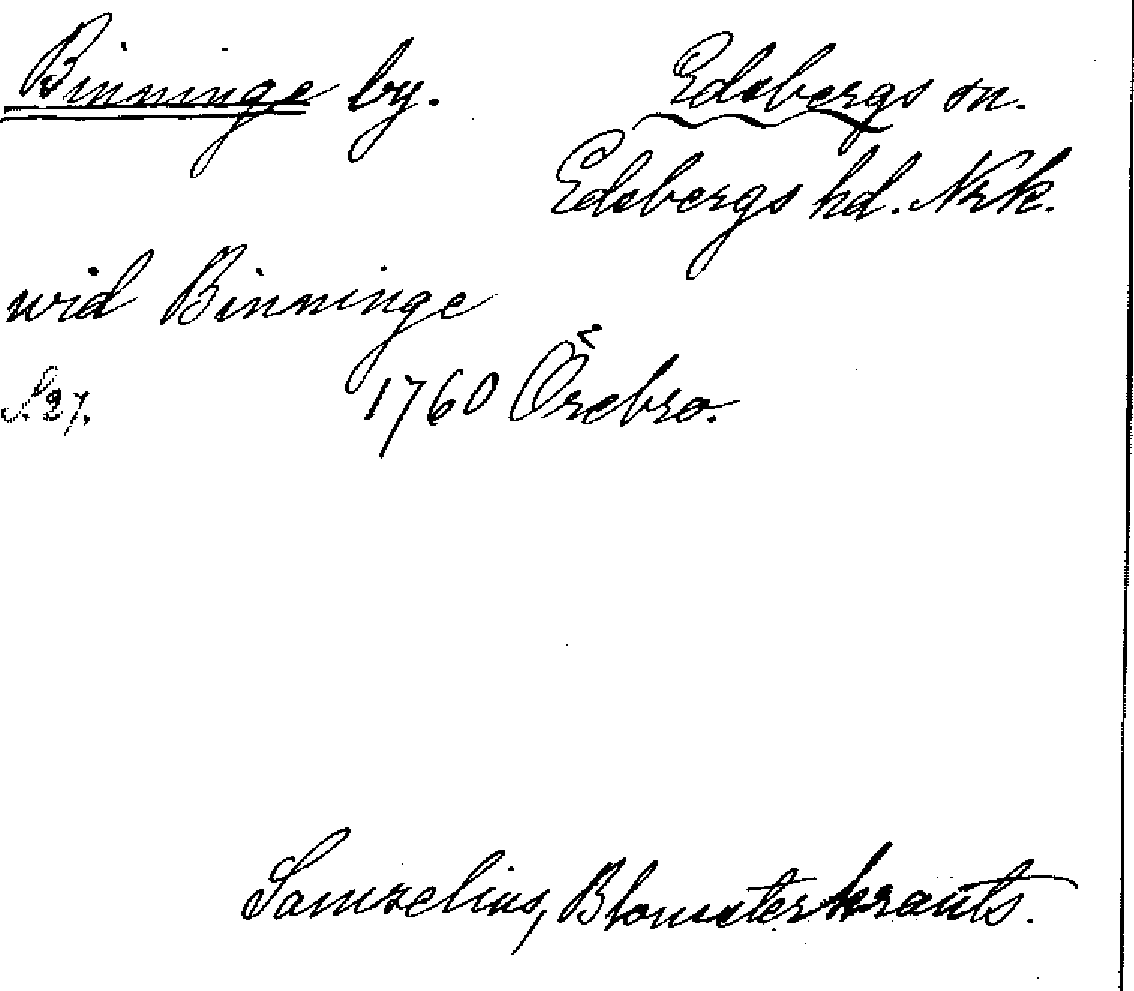 Binninge by. Edsbergs sn.
Edsbergs hd. Nrk.
wid Binninge
S. 27. 1760 Örebro.
Samzelius, Blomsterkrants.